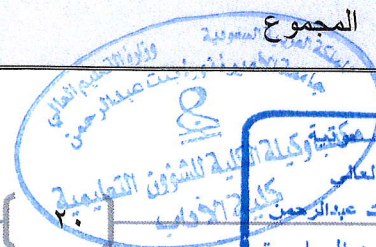 المجموع
المملكة العربية السعودية
وزارة التعليم العالي
جامعة الأميرة نورة بنت عبدالرحمن
وكيلة الكلية للشؤون التعليمية
كلية الآداب
العالي
ت عبدالرحمن
٢٠